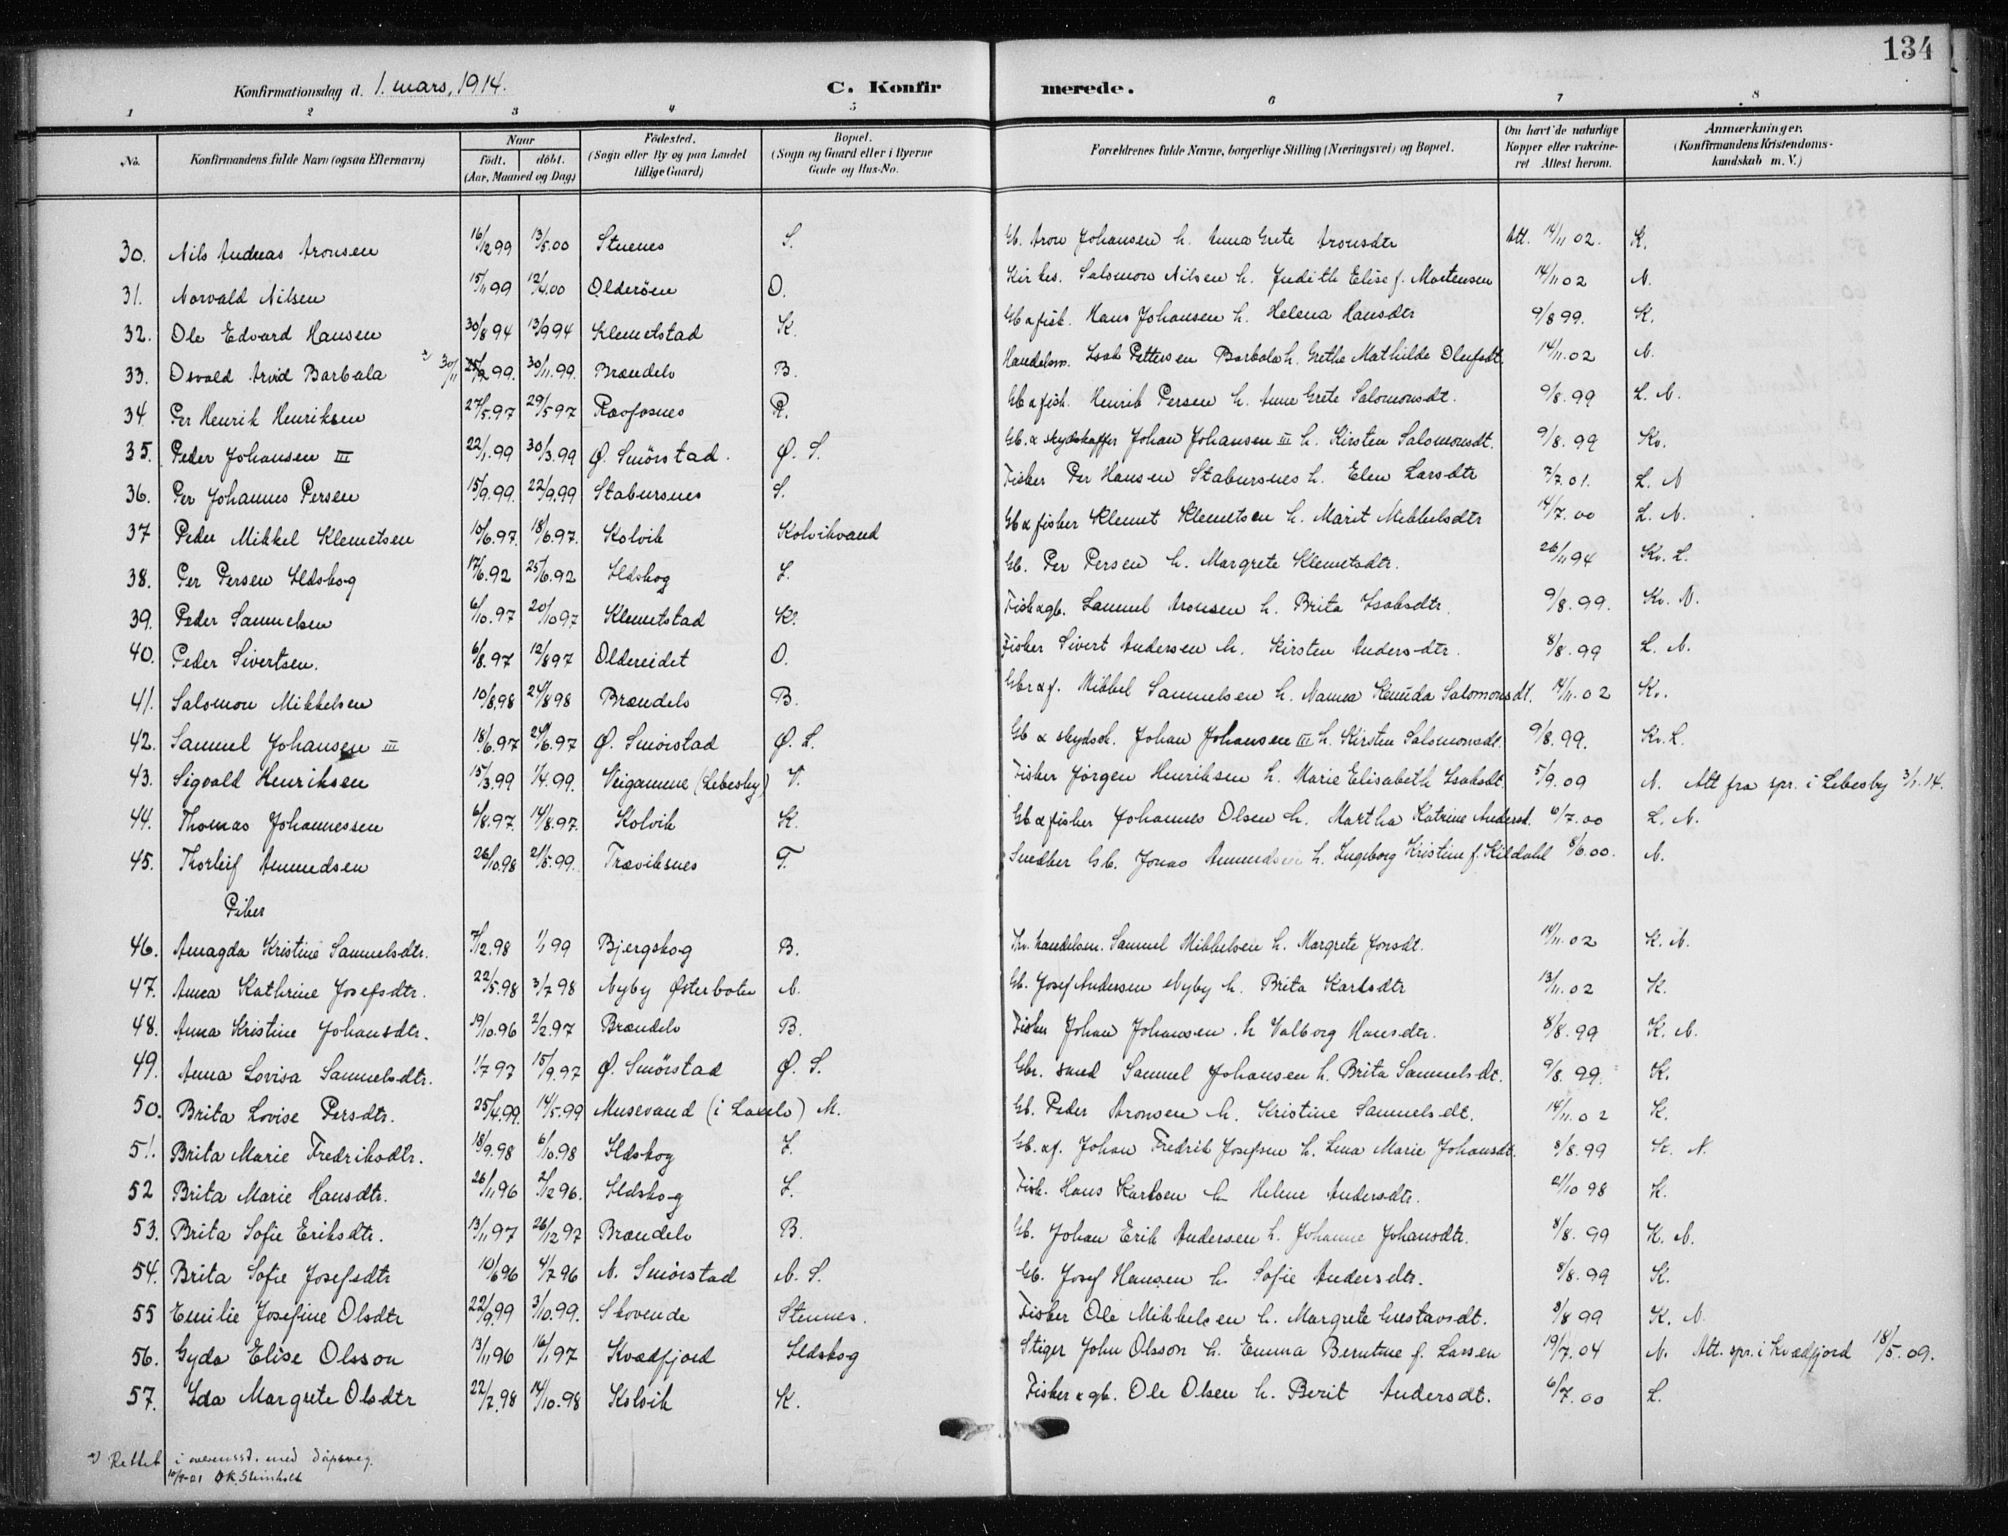 134
Konfirmationsdag d. 1. mars, 1914. C. Konfirmerede.
1 2 3 4 5 6 7 8
No. Konfirmandens fulde Navn (ogsaa Efternavn) Naar født. døbt. (Aar, Maaned og Dag) Fødested. (Sogn eller By og paa Landet tillige Gaard) Bopæl. (Sogn og Gaard eller i Byerne Gade og Hus-No. Forældrenes fulde Navne, borgerlige Stilling (Næringsvei) og Bopæl. Om havt de naturlige Kopper eller vakcineret Attest herom. Anmærkninger. (Konfirmandens Kristendomskundskab m. V.)
30. Nils Andreas Aronsen 16/12 99 13/5.00 Stuenes S. Gb. Aron Johansen h. Anna Grete Aronsdtr Att. 14/11 02. K.
31. Norvald Nilsen 15/11 99 12/4.00 Olderöen O. Kirkes. Salomon Nilsen h. Judith Elise f. Mortensen 14/11 02 N.
32. Ole Edvard Hansen 30/8 94 13/9 94 Klemetstad K. Gb & fisk. Hans Johansen h. Helena Hansdtr 9/8 99. K.
33. Osvald Arvid Barbala x) 30/11 25/9 99. 30/11.99. Brændelv B. Handelsm. Isak Pettersen Barbala h. Grethe Mathilde Olufsdt. 14/11.02 N.
34 Per Henrik Henriksen 27/5.97 29/5 97 Ravfosnes R. Gb & fisk. Henrik Persen h. Anne Grete Salomonsdt. 9/8.99 L. N.
35. Peder Johansen III 22/1.99 30/3.99 Ø. Smørstad. Ø. S. Gb. & skydskaffer Johan Johansen III h. Kirsten Salomonsdt. 9/8.99 Kv.
36. Per Johannes Persen 15/9.99. 22/9.99 Stabursnes S. Fisker Per Hansen Stabursnes h. Elen Larsdtr 7/7.01. L. N
37 Peder Mikkel Klemetsen 10/6.97. 18/6.97. Kolvik Kolvikvand Gb & fisker Klemet Klemetsen h. Marit Mikkelsdtr 14/7.00 L. N.
38. Per Persen Ildskog 17/6.92 25/6.92 Ildskog I. Gb. Per Persen h. Margrete Klemetsdtr. 26/11 94 Kv. L.
39. Peder Samuelsen 6/10.97 20/10 97 Klemetstad K. Fisk & gb. Samuel Aronsen h. Brita Isaksdtr. 9/8.99. Kv. N.
40. Peder Sivertsen. 6/8.97 12/8 97 Oldereidet O. Fisker Sivert Andersen h. Kirsten Andersdtr. 8/8.99 L. N.
41. Salomon Mikkelsen 10/8.98 24/8 98 Brændelv B. Gbr & f. Mikkel Samuelsen h. Namea Kenuda Salomonsdt. 14/11.02 Kv.
42. Samuel Johansen III 18/6.97 24/6.97 Ø. Smørstad Ø. S. Gb & skydssk. Johan Johansen III h. Kirsten Salomonsdt. 9/8.99. Kv. L.
43. Sigvald Henriksen 15/3.99 1/4.99. Veigamme (Lebesby) V. Fisker Jørgen Henriksen h. Marie Elisabeth Isaksdt. 5/9.09 N. Att fra spr. i Lebesby 3/1.14.
44. Thomas Johannessen 6/8.97. 14/8.97. Kolvik K. Gb & fisker Johannes Olsen h. Martha Katrine Andersd. 6/7.00 L. N.
45. Thorleif Amundsen 26/10.98 21/5.99. Træviksnes T. Snedker Gb. Jonas Amundsen h. Ingeborg Kristine f. Kildahl 8/6.00. N.
Piker
46. Amagda Kristine Samuelsdtr. 7/12.98 1/1 99 Bjergskog B. Kv. handelsm. Samuel Mikkelsen h. Margrete Jonsdt. 14/11.02 K. N.
47. Anna Kathrine Josefsdtr. 22/5.98 3/7 98 Nyby Østerboten N. Gb. Josef Andersen Nyby h. Brita Karlsdtr 13/11.02 K.
48. Anna Kristine Johansdtr. 19/10.96 2/2.97 Brændelv B. Fisker Johan Johansen. h Valborg Hansdtr. 8/8.99 K. N.
49. Anna Lovisa Samuelsdtr. 1/7 97 15/9.97 Ø. Smörstad Ø. S. Gbr. sand Samuel Johansen h. Brita Samuelsdt. 9/8.99. K.
50. Brita Lovise Persdtr. 25/4.99. 14/5.99 Musevand (i Laxelv) M. Gb. Peder Aronsen h. Kristine Samuelsdt. 14/11.02 K.
51. Brita Marie Fredriksdtr. 18/9.98 6/10.98 Ildskog I. Gb. & f. Johan Fredrik Josefsen h. Lina Marie Johansdt. 8/8.99 K. N.
52 Brita Marie Hansdtr. 26/11 96 2/12 96. Ildskog I. Fisk. Hans Karlsen h Helene Andersdtr. 21/10 98 K.
53. Brita Sofie Eriksdtr. 13/11 97 26/12 97 Brændelv B. Gb. Johan Erik Andersen h. Johanne Johansdtr. 8/8.99 K. N.
54. Brita Sofie Josefsdtr 10/6 96 4/7 96 N. Smörstad N. S. Gb. Josef Hansen h Sofie Andersdtr. 8/8.99 K.
55 Emilie Josefine Olsdtr 22/9.99 3/10.99. Skovende Stennes. Fisker Ole Mikkelsen h. Margrete Gustavsdt. 3/8 99 K. N.
56. Gyda Elise Olsson 13/11 96 16/1 97 Kvædfjord Ildskog Stiger John Olsson h. Emma Berntine f. Larsen 19/7.04 N. Att. spr. i Kvædfjord 18/5.09.
57. Ida Margrete Olsdtr 22/7.98 14/10.98 Kolvik K. Fisker & gb. Ole Olsen h. Berit Andersdt. 6/7.00 L.
x) Rettet i overensst. med dåpsreg.
10/9-01 OK. Steinholt